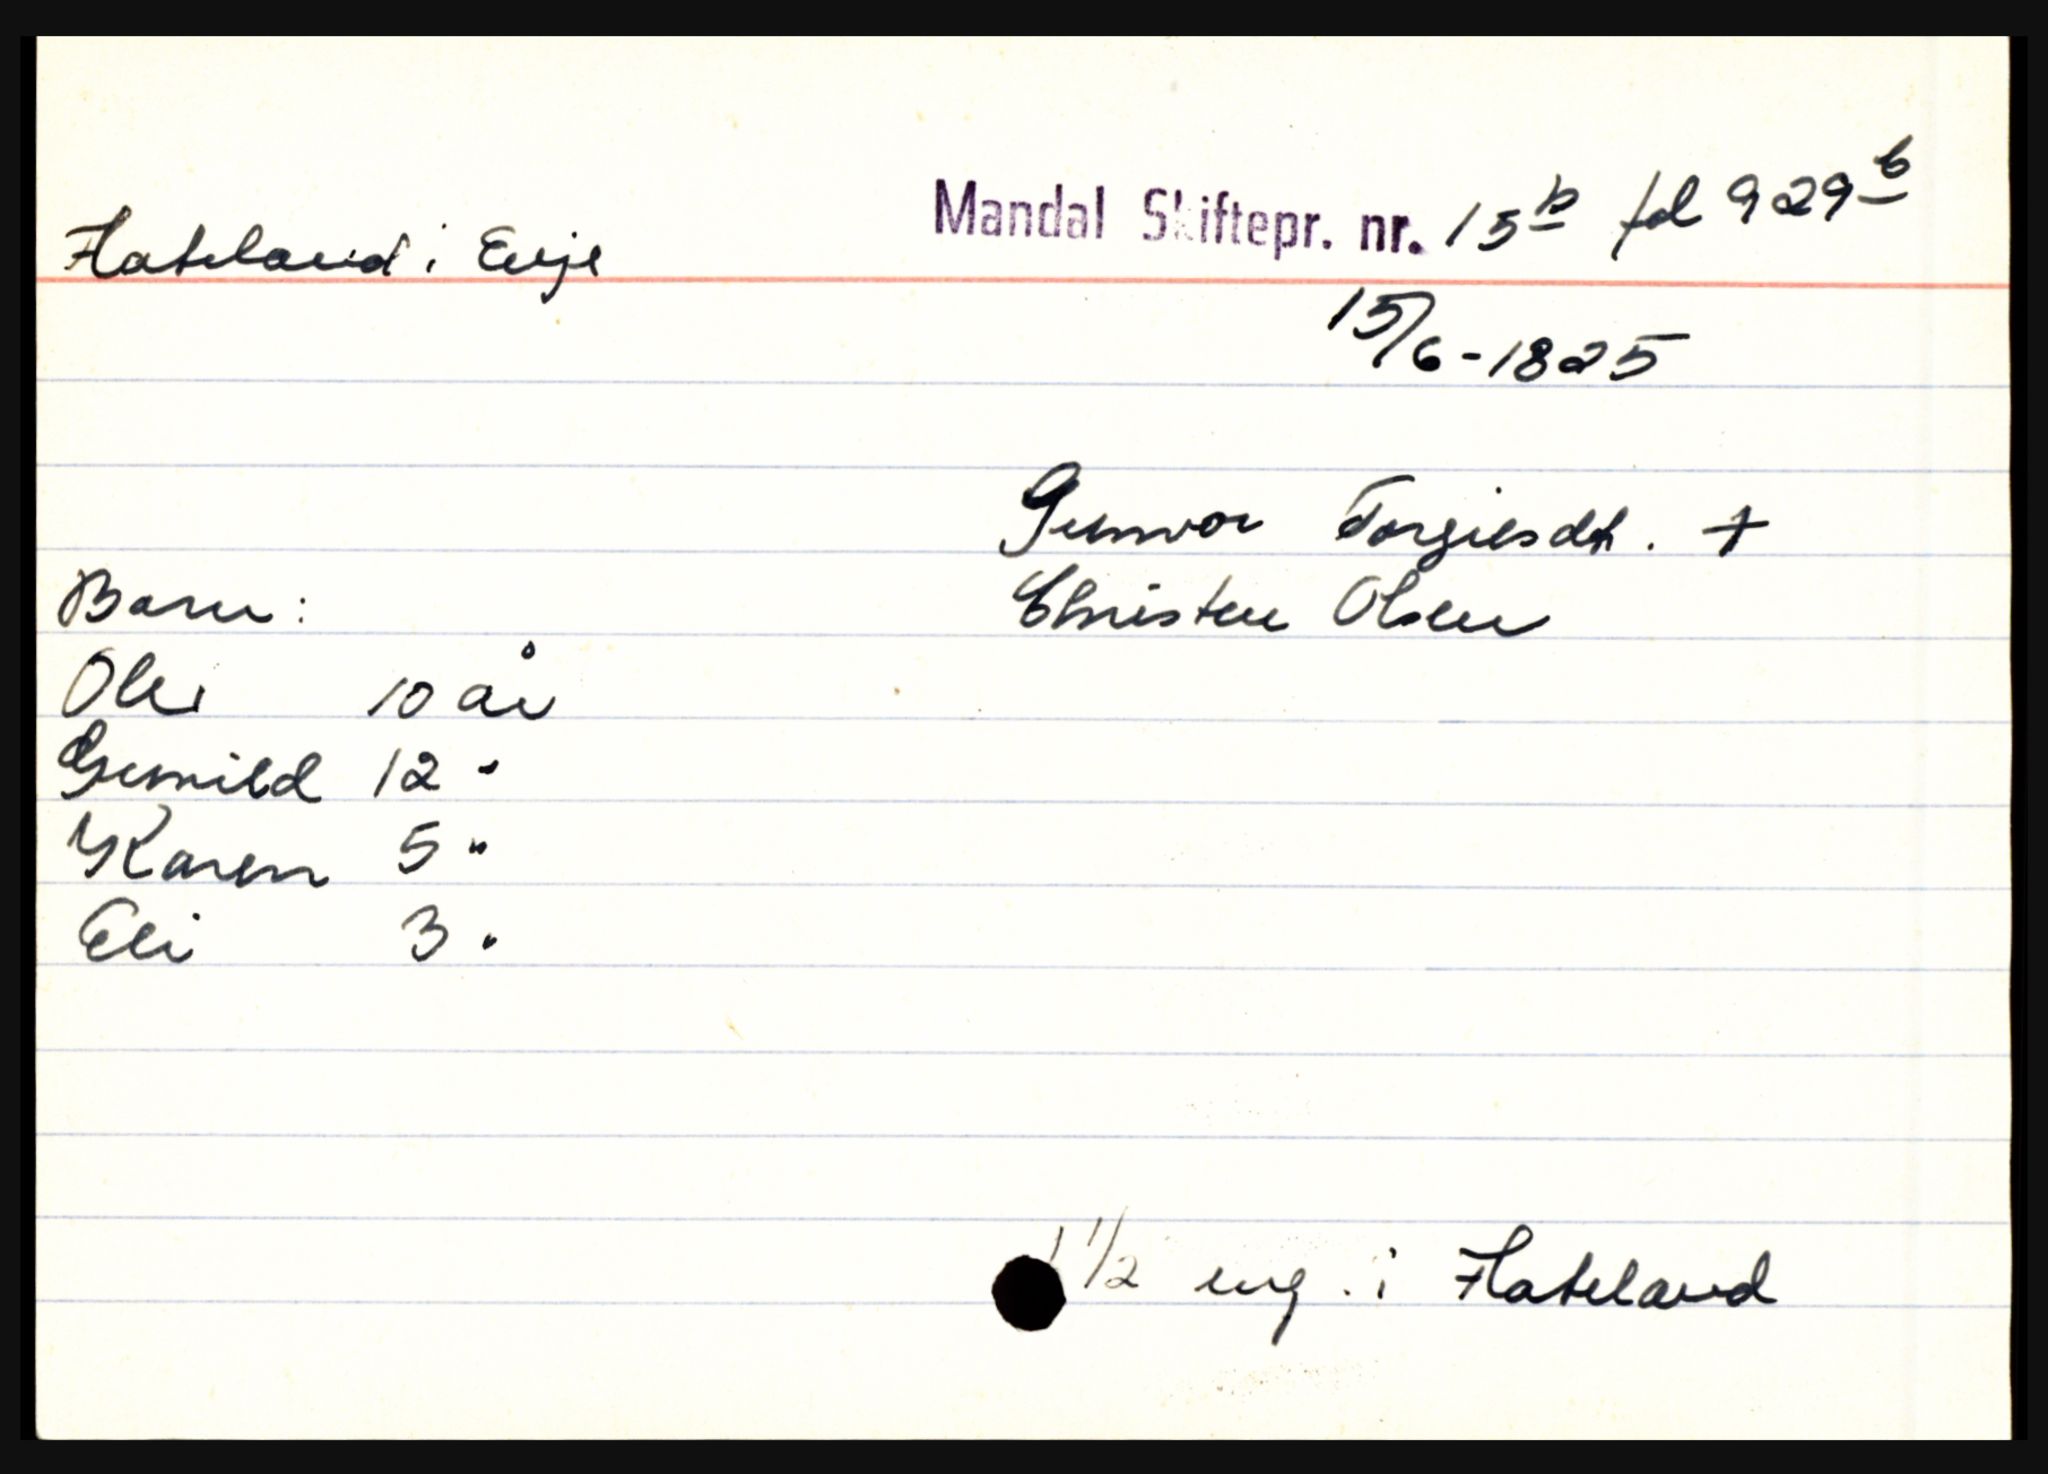 Hateland i Evje
Mandal Skiftepr. nr. 15b fol 929b
15/6-1825
Gunvor Torgiesdtr. +
Christen Olsen
Barn:
Ole 10 år
Gunild 12 "
Karen 5 "
Eli 3 "
1 1/2 eng. i Hateland